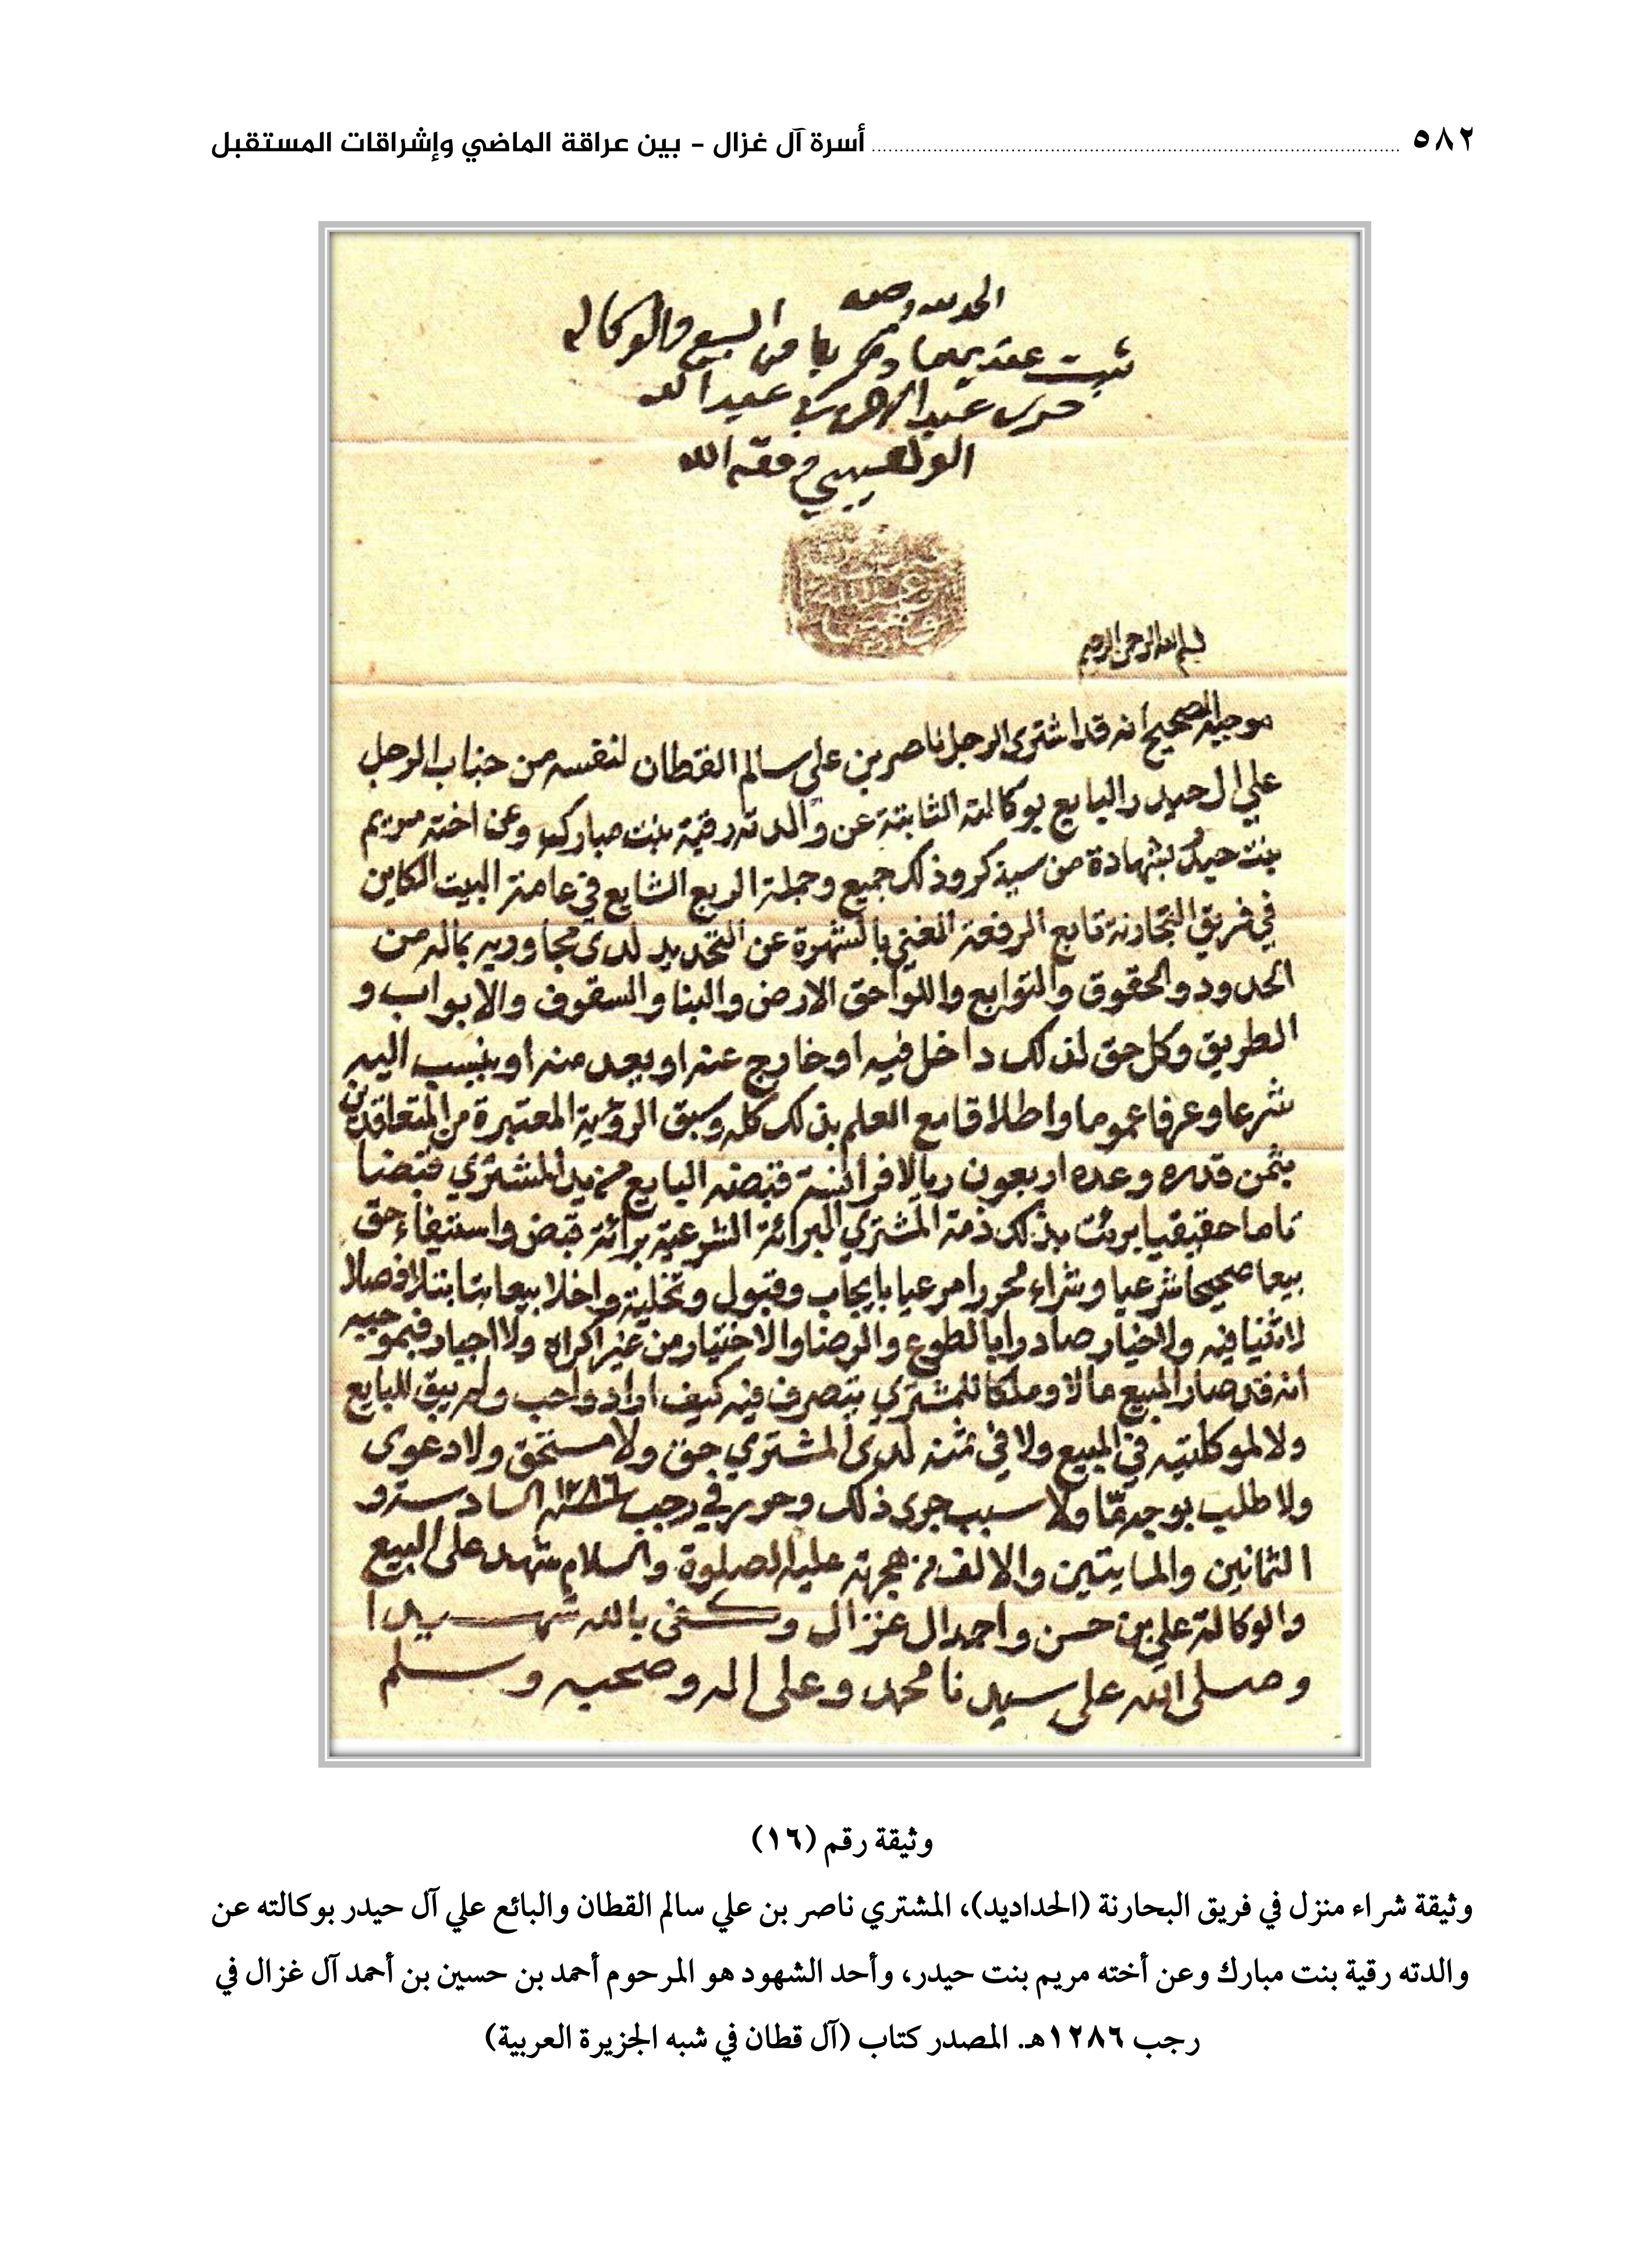 ٥٨٢ أسرة آل غزال - بين عراقة الماضي وإشراقات المستقبل
الحمد لله وحده
ثبت عندي ما ذكر باطنا من البيع والوكاله
حرره عبدالرحمن بن عبدالله
الوهيبي وفقه الله
بسم الله الرحمن الرحيم
موجبه الصحيح انه قد اشترى الرجل ناصر بن علي سالم القطان لنفسه من جناب الرجل
علي ال حيدر البايع بوكالته الثابتة عن والدته رقية بنت مبارك وعن اخته مريم
بنت حيدر بشهادة من سيذكر وذلك جميع وجملة الربع الشايع في عامة البيت الكاين
في فريق البحارنة تابع الرفعة الغني بالشهرة عن التحديد لدى مجاوريه بماله من
الحدود والحقوق والتوابع واللواحق الارض والبنا والسقوف والابواب و
الطريق وكل حق لذلك داخل فيه او خارج عنه او يعد منه او ينسب اليه
شرعا وعرفا عموما واطلاقا مع العلم بذلك كله وسبق الرؤية المعتبرة من المتعاقدين
بثمن قدره وعده اربعون ريالا فرانسة قبضه البايع من يد المشتري قبضا
تاما حقيقيا برئت بذلك ذمة المشتري البرائة الشرعية برائة قبض واستيفاء حق
بيعا صحيحا شرعيا وشراء محررا مرعيا بايجاب وقبول وتخلية واخلا بيعا بتا بتلا فصلا
لا ثنيا فيه ولا خيار صادرا بالطوع والرضا والاختيار من غير اكراه ولا اجبار فبموجبه
انه قد صار المبيع مالا وملكا للمشتري يتصرف فيه كيف اراد واحب ولم يبق للبايع
ولا لموكلتيه في المبيع ولا في ثمنه لدى المشتري حق ولا مستحق ولا دعوى
ولا طلب بوجه ما ولا سبب جرى ذلك وحرر في رجب سنة ١٢٨٦ السادسة و
الثمانين والمايتين والالف من هجرته عليه الصلوة والسلام شهد على البيع
والوكالة علي بن حسن واحمد ال غزال وكفى بالله شهيدا
وصلى الله على سيدنا محمد وعلى اله وصحبه وسلم
وثيقة رقم (١٦)
وثيقة شراء منزل في فريق البحارنة (الحداديد)، المشتري ناصر بن علي سالم القطان والبائع علي آل حيدر بوكالته عن
والدته رقية بنت مبارك وعن أخته مريم بنت حيدر، وأحد الشهود هو المرحوم أحمد بن حسين بن أحمد آل غزال في
رجب ١٢٨٦هـ. المصدر كتاب (آل قطان في شبه الجزيرة العربية)